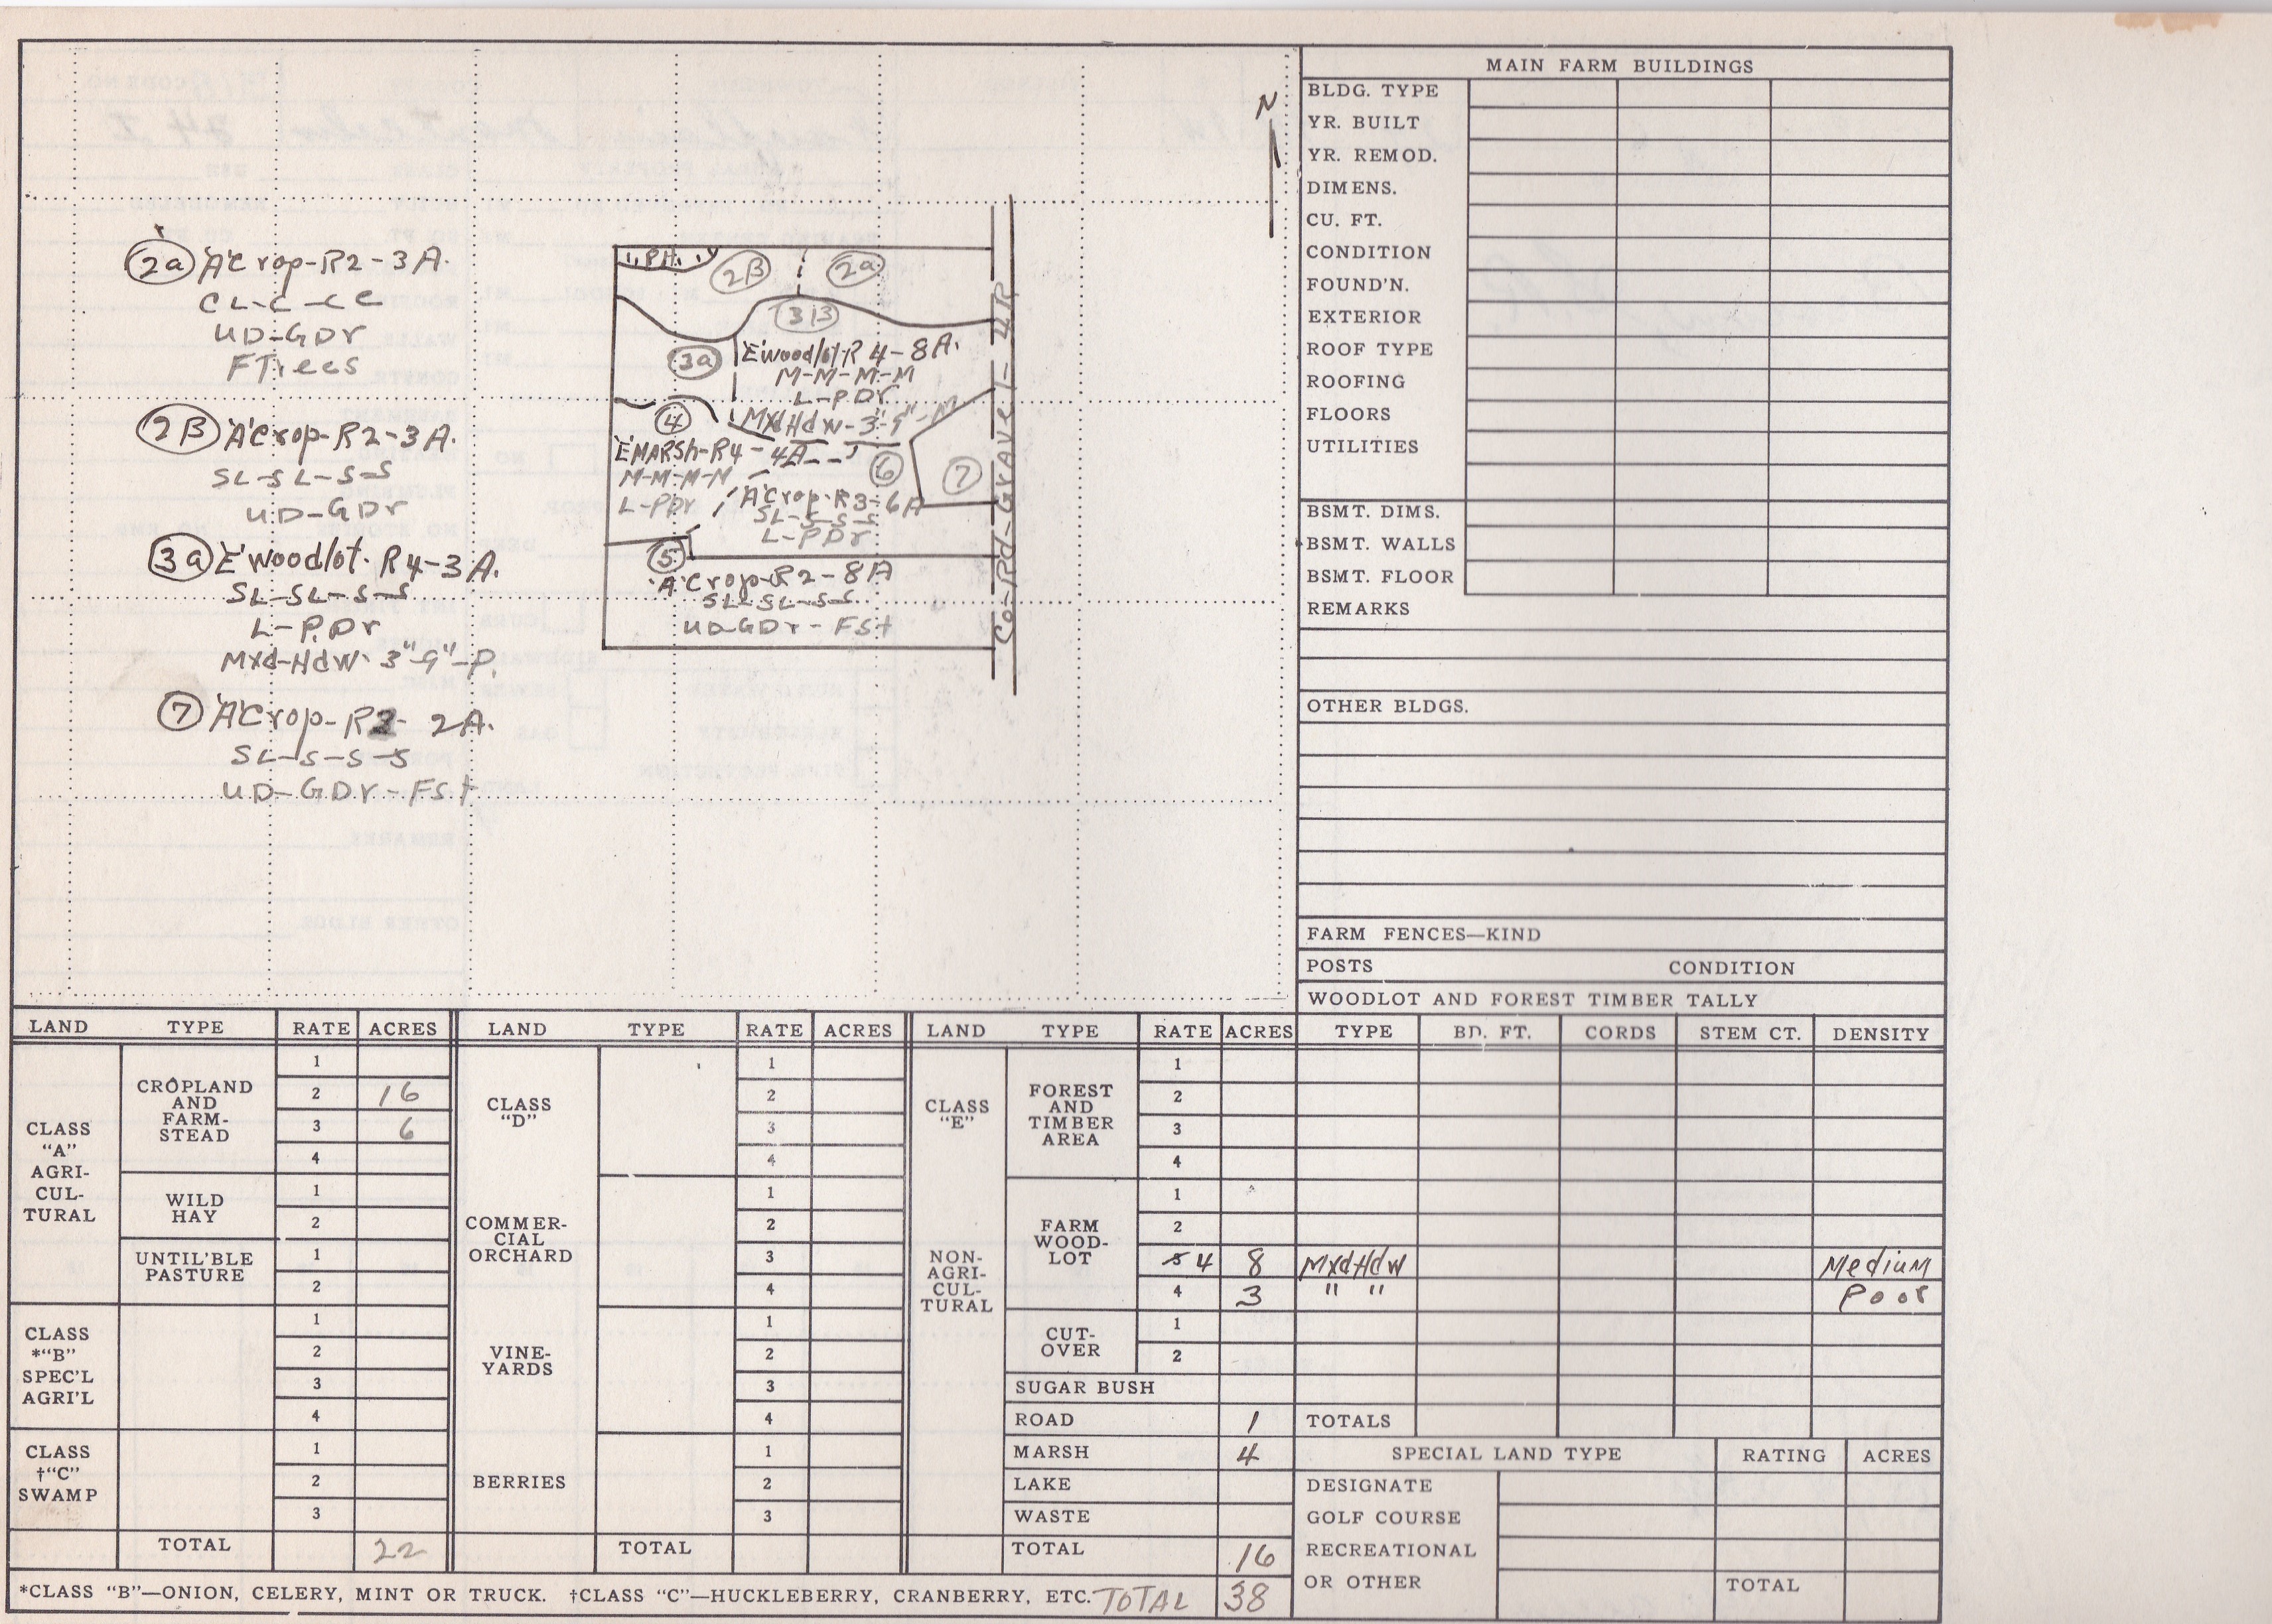 N
2a 'A'Crop-R2-3A.
CL-C-CC
UD-GDr
FTrees
2B 'A'Crop-R2-3A.
SL-SL-S-S
UD-GDr
3a 'E'woodlot-R4-3A.
SL-SL-S-S
L-P.Dr
Mxd-Hdw-3"-9"-P.
7 'A'Crop-R2-2A.
SL-S-S-S
UD-GDr-FSt
2B 2a
3B
3a 'E'woodlot-R4-8A.
M-M-M-M
L-PDr
MxdHdw-3"-9"-M
4
'E'MARSh-R4-4A
M-M-M-M
L-PDr
6
7
'A'Crop-R3-6A
SL-S-S-S
L-PDr
5
'A'Crop-R2-8A
SL-SL-S-S
UD-GDr-FSt
Co-Rd-Gravel-4R
MAIN FARM BUILDINGS
BLDG. TYPE
YR. BUILT
YR. REMOD.
DIMENS.
CU. FT.
CONDITION
FOUND'N.
EXTERIOR
ROOF TYPE
ROOFING
FLOORS
UTILITIES
BSMT. DIMS.
BSMT. WALLS
BSMT. FLOOR
REMARKS
OTHER BLDGS.
FARM FENCES—KIND
POSTS CONDITION
WOODLOT AND FOREST TIMBER TALLY
LAND TYPE RATE ACRES LAND TYPE RATE ACRES LAND TYPE RATE ACRES TYPE BD. FT. CORDS STEM CT. DENSITY
CLASS
"A"
AGRI-
CUL-
TURAL
CROPLAND
AND
FARM-
STEAD
1
2 16
3 6
4
WILD
HAY
1
2
UNTIL'BLE
PASTURE
1
2
CLASS
*"B"
SPEC'L
AGRI'L
1
2
3
4
CLASS
†"C"
SWAMP
1
2
3
TOTAL 22
CLASS
"D"
1
2
3
4
COMMER-
CIAL
ORCHARD
1
2
3
4
VINE-
YARDS
1
2
3
4
BERRIES
1
2
3
TOTAL
CLASS
"E"
NON-
AGRI-
CUL-
TURAL
FOREST
AND
TIMBER
AREA
1
2
3
4
FARM
WOOD-
LOT
1
2
4 8 MxdHdw Medium
4 3 " " Poor
CUT-
OVER
1
2
SUGAR BUSH
ROAD 1 TOTALS
MARSH 4
LAKE
WASTE
TOTAL 16
SPECIAL LAND TYPE RATING ACRES
DESIGNATE
GOLF COURSE
RECREATIONAL
OR OTHER
TOTAL
*CLASS "B"—ONION, CELERY, MINT OR TRUCK. †CLASS "C"—HUCKLEBERRY, CRANBERRY, ETC. TOTAL 38